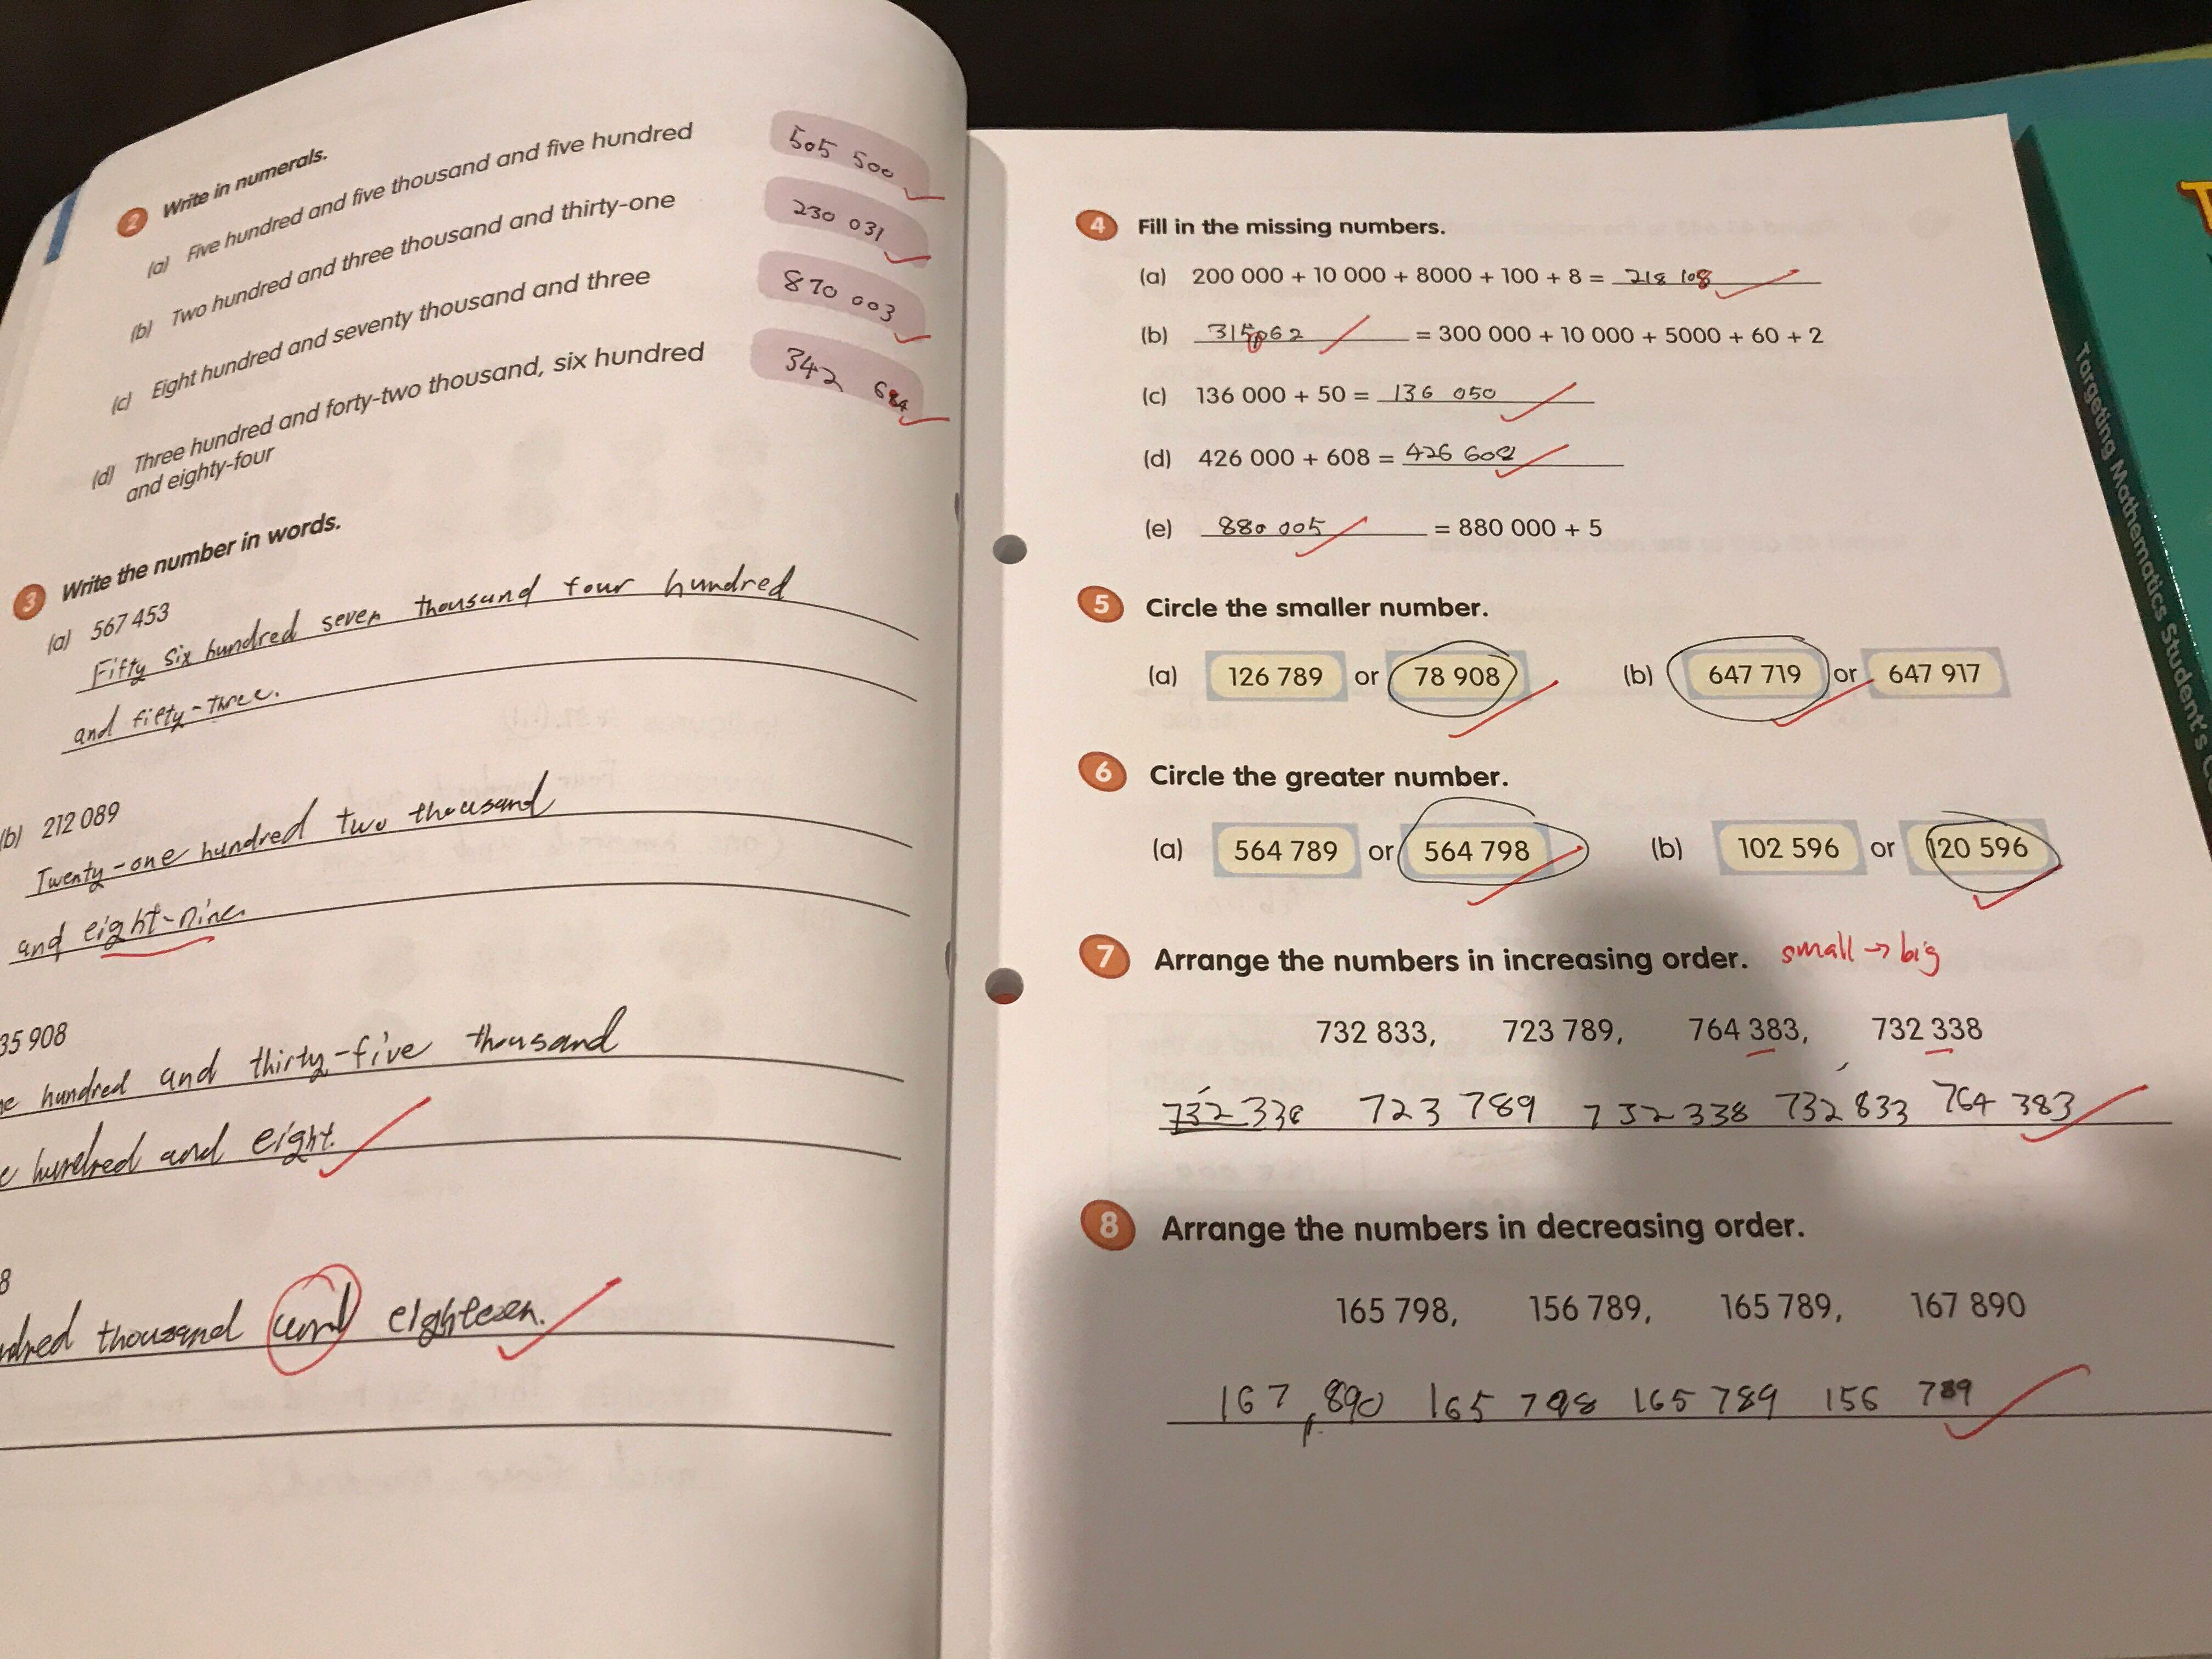 2 Write in numerals.
(a) Five hundred and five thousand and five hundred 505 500
(b) Two hundred and three thousand and thirty-one 230 031
(c) Eight hundred and seventy thousand and three 870 003
(d) Three hundred and forty-two thousand, six hundred 342 684
and eighty-four
3 Write the number in words.
(a) 567 453
Fifty six hundred seven thousand four hundred
and fifty-three.
(b) 212 089
Twenty-one hundred two thousand
and eight-nine
35 908
hundred and thirty-five thousand
hundred and eight.
8
thousand and eighteen.
4 Fill in the missing numbers.
(a) 200 000 + 10 000 + 8000 + 100 + 8 = 218 108
(b) 315062 = 300 000 + 10 000 + 5000 + 60 + 2
(c) 136 000 + 50 = 136 050
(d) 426 000 + 608 = 426 608
(e) 880 005 = 880 000 + 5
5 Circle the smaller number.
(a) 126 789 or 78 908 (b) 647 719 or 647 917
6 Circle the greater number.
(a) 564 789 or 564 798 (b) 102 596 or 120 596
7 Arrange the numbers in increasing order. small → big
732 833, 723 789, 764 383, 732 338
732 338 723 789 732 338 732 833 764 383
8 Arrange the numbers in decreasing order.
165 798, 156 789, 165 789, 167 890
167,890 165 798 165 789 156 789
Targeting Mathematics Student's